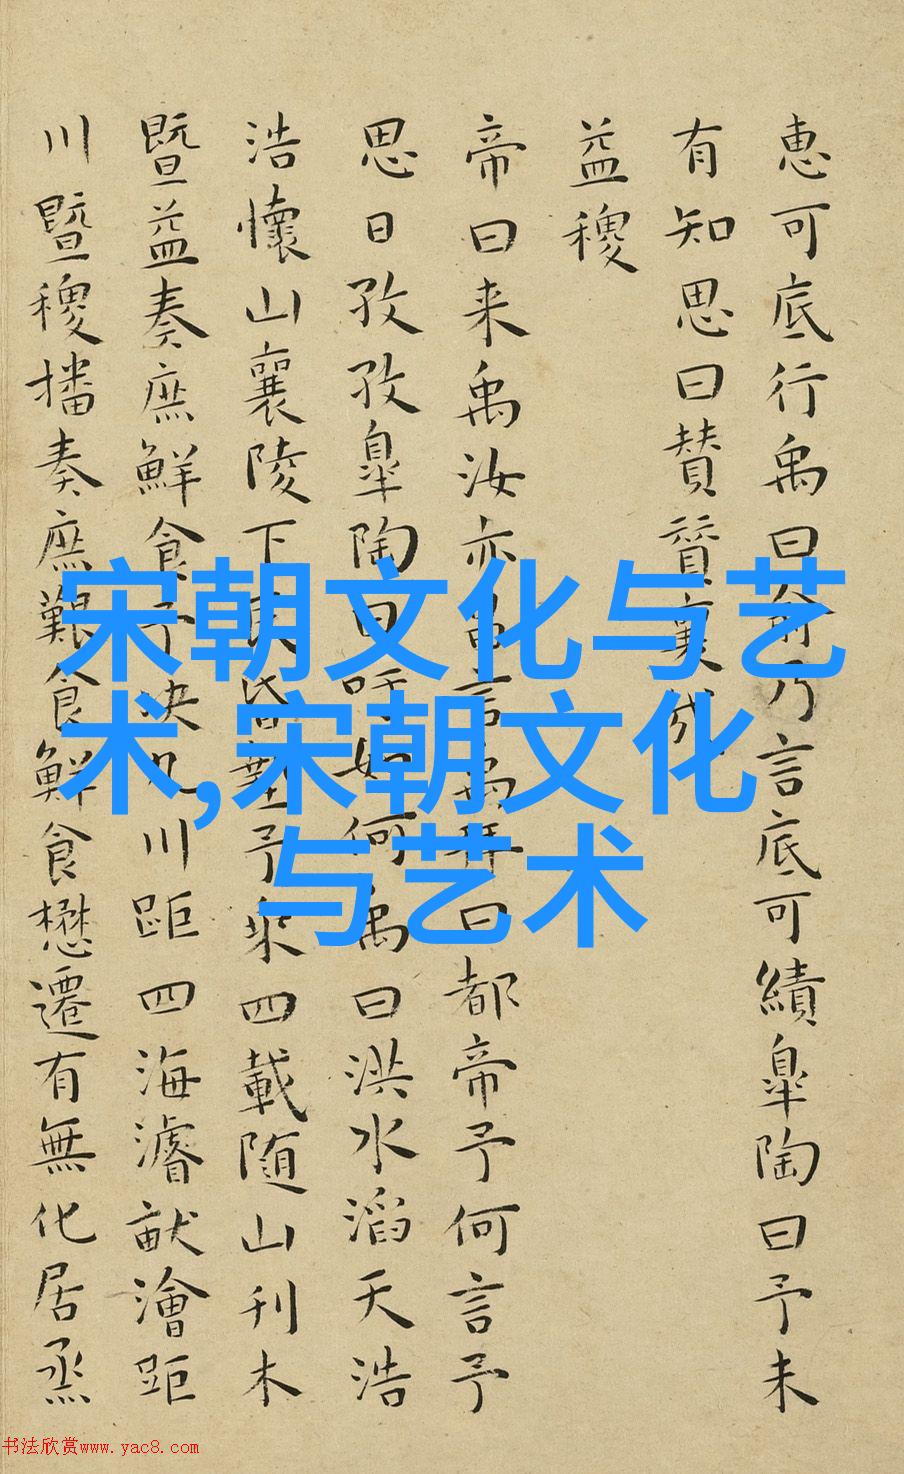 惠可底行禹曰俞乃言底可績皐陶曰予未
有知思曰賛賛襄哉
益稷
帝曰来禹汝亦昌言禹拜曰都帝予何言予
思日孜孜皐陶曰吁如何禹曰洪水滔天浩
浩懷山襄陵下民昏墊予乗四載随山刊木
暨益奏庶鮮食予决九川距四海濬畎澮距
川暨稷播奏庶艱食鮮食懋遷有無化居烝
宋朝文化与艺
术,宋朝文化
与艺术
书法欣赏www.yac8.com